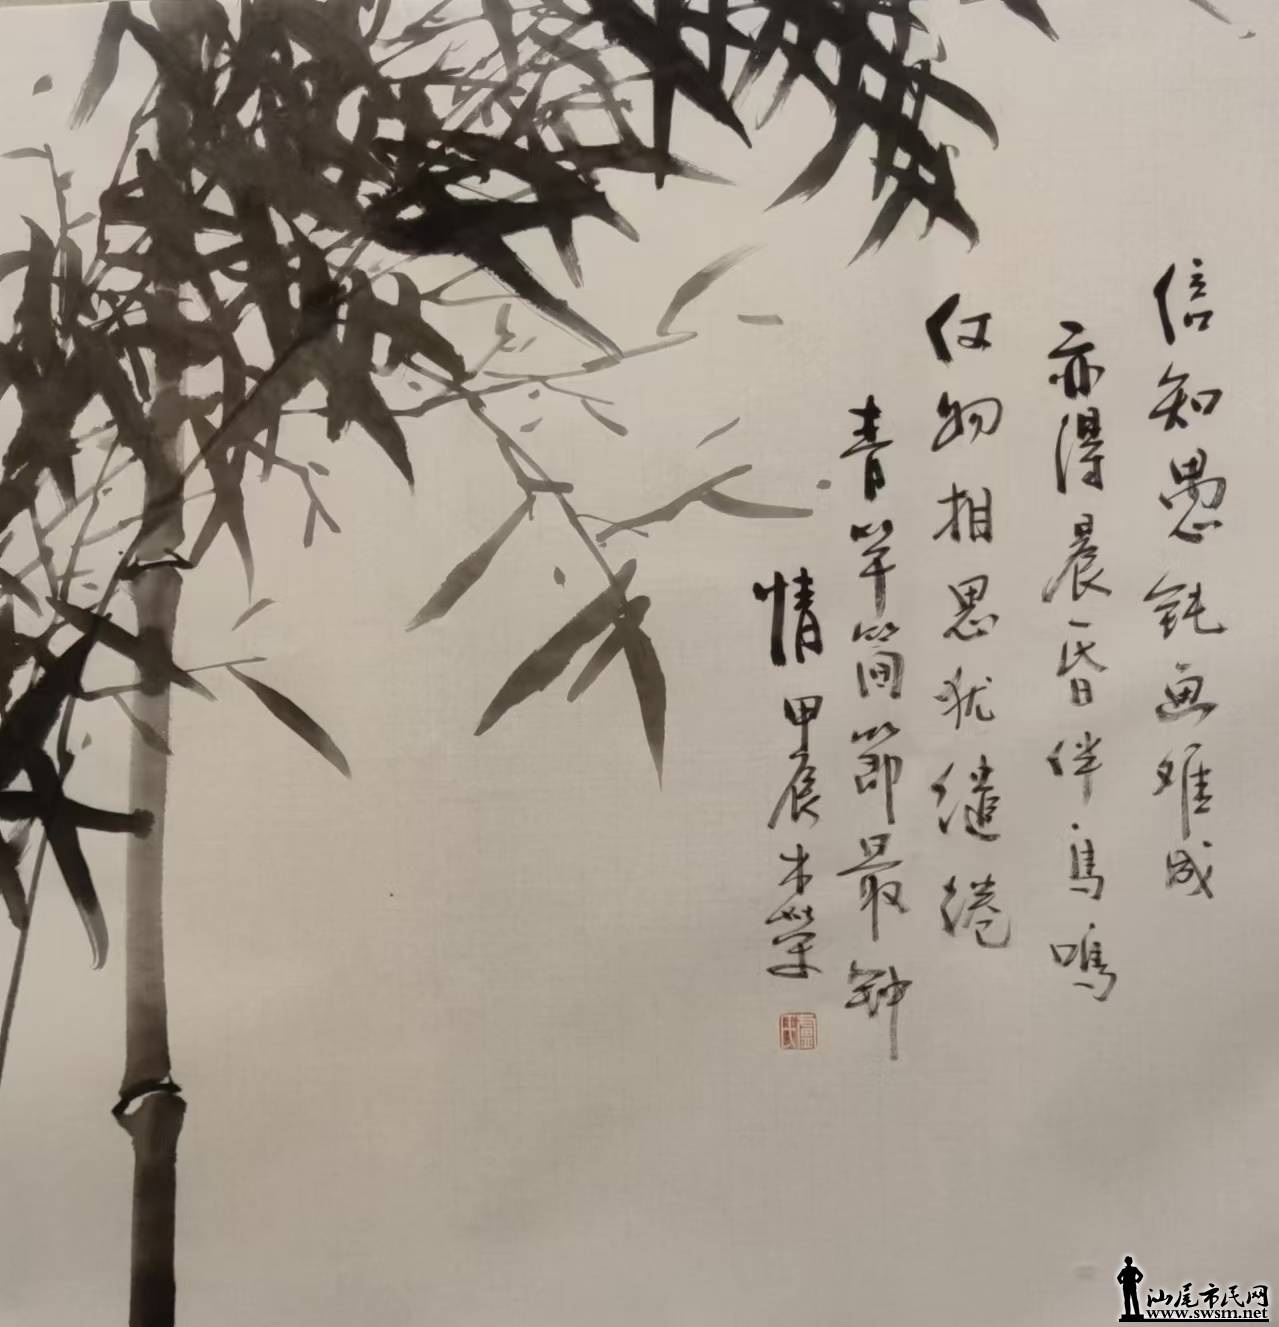 信知愚钝画难成
亦得晨昏伴鸟鸣
何物相思犹缱绻
青竿简節最钟
情 甲辰木荣
汕尾市民网
www.swsm.net